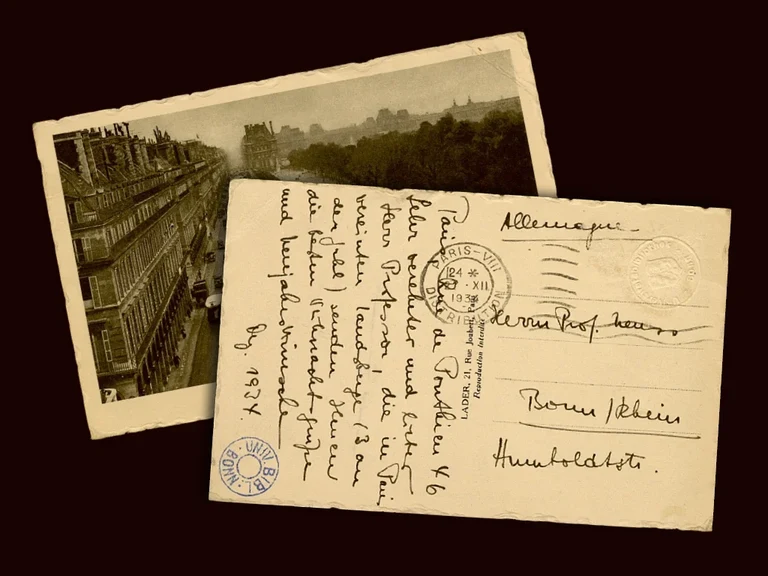 Paris, rue de Ponthieu 46
Sehr verehrter und lieber
Herr Professor, die in Paris
vereinten Landsberger (3 an
der Zahl) senden Ihnen
die besten Weihnachtsgrüße
und Neujahrswünsche
Dez. 1934.
UNIV. BIBL. BONN
PARIS-VIII
24 *
XII
1934
DISTRIBUTION
LADER, 21, Rue Joubert, Paris
Reproduction Interdite
Allemagne
Herrn Prof. Neuss
Bonn / Rhein
Humboldtstr.